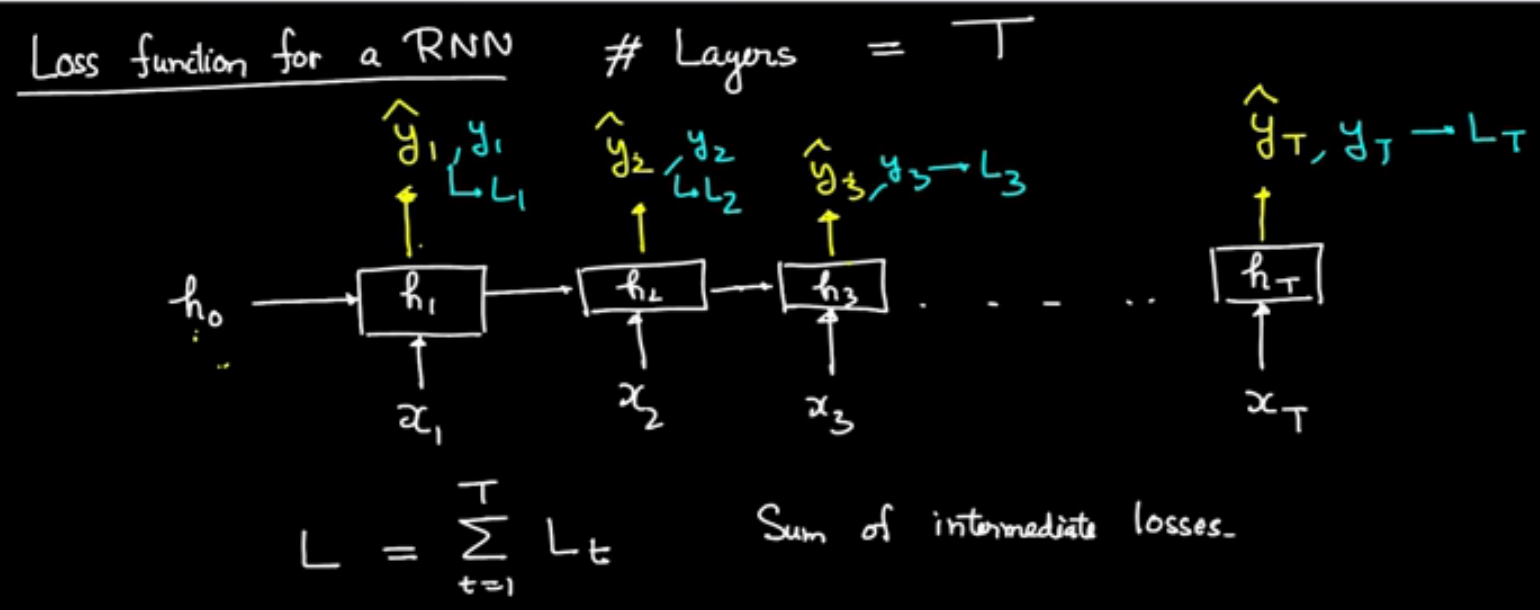 Loss function for a RNN # Layers = T
ŷ₁, y₁ ŷ₂, y₂ ŷ₃, y₃ → L₃ ŷ_T, y_T → L_T
↳ L₁ ↳ L₂
h₀ → h₁ → h₂ → h₃ . - - - .. h_T
x₁ x₂ x₃ x_T
L = Σ_{t=1}^{T} L_t Sum of intermediate losses.